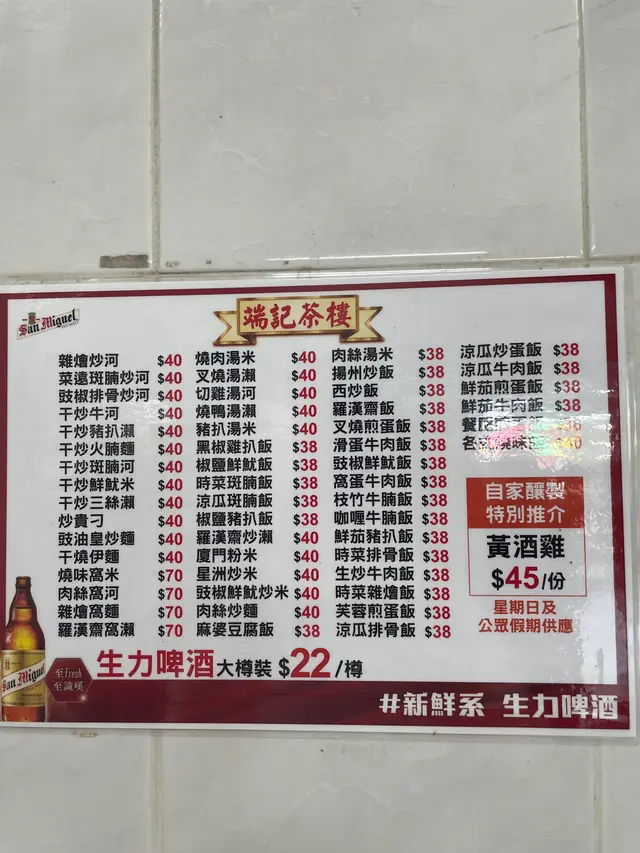 San Miguel
端記茶樓
雜燴炒河 $40
菜遠斑腩炒河 $40
豉椒排骨炒河 $40
干炒牛河 $40
干炒豬扒瀨 $40
干炒火腩麵 $40
干炒斑腩河 $40
干炒鮮魷米 $40
干炒三絲瀨 $40
炒貴刁 $40
豉油皇炒麵 $40
干燒伊麵 $40
燒味窩米 $70
肉絲窩河 $70
雜燴窩麵 $70
羅漢齋窩瀨 $70
燒肉湯米 $40
叉燒湯瀨 $40
切雞湯河 $40
燒鴨湯瀨 $40
豬扒湯米 $40
黑椒雞扒飯 $38
椒鹽鮮魷飯 $38
時菜斑腩飯 $38
涼瓜斑腩飯 $38
椒鹽豬扒飯 $38
羅漢齋炒瀨 $40
廈門粉米 $40
星洲炒米 $40
豉椒鮮魷炒米 $40
肉絲炒麵 $40
麻婆豆腐飯 $38
肉絲湯米 $38
揚州炒飯 $38
西炒飯 $38
羅漢齋飯 $38
叉燒煎蛋飯 $38
滑蛋牛肉飯 $38
豉椒鮮魷飯 $38
窩蛋牛肉飯 $38
枝竹牛腩飯 $38
咖喱牛腩飯 $38
鮮茄豬扒飯 $38
時菜排骨飯 $38
生炒牛肉飯 $38
時菜雜燴飯 $38
芙蓉煎蛋飯 $38
涼瓜排骨飯 $38
涼瓜炒蛋飯 $38
涼瓜牛肉飯 $38
鮮茄煎蛋飯 $38
鮮茄牛肉飯 $38
自家釀製
特別推介
黃酒雞
$45/份
星期日及
公眾假期供應
San Miguel
至fresh
至讚嘆
生力啤酒大樽裝 $22/樽
#新鮮系 生力啤酒